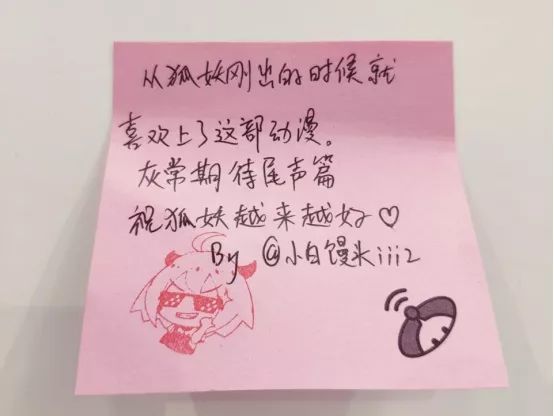 从狐妖刚出的时候就
喜欢上了这部动漫。
灰常期待尾声篇
祝狐妖越来越好♡
By @小白馒头iii2